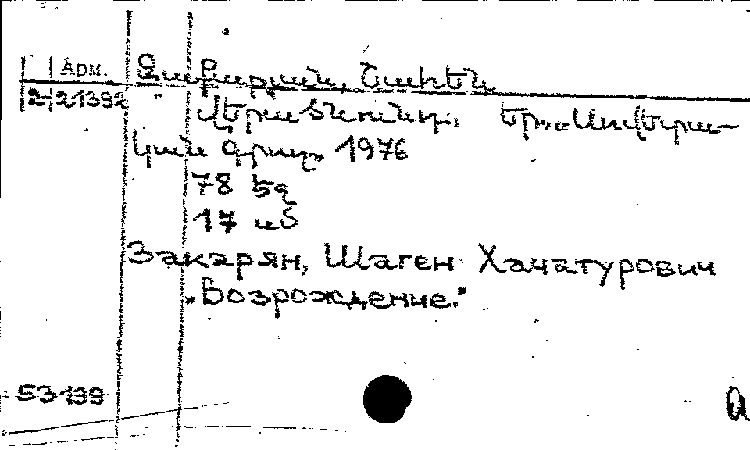 Арм. Զաքարյան, Շահեն
2-21392 Վերածնունդ. Եր., Սովետա-
կան գրող, 1976
78 էջ
17 սմ
Закарян, Шаген Хачатурович
„Возрождение."
53199
a